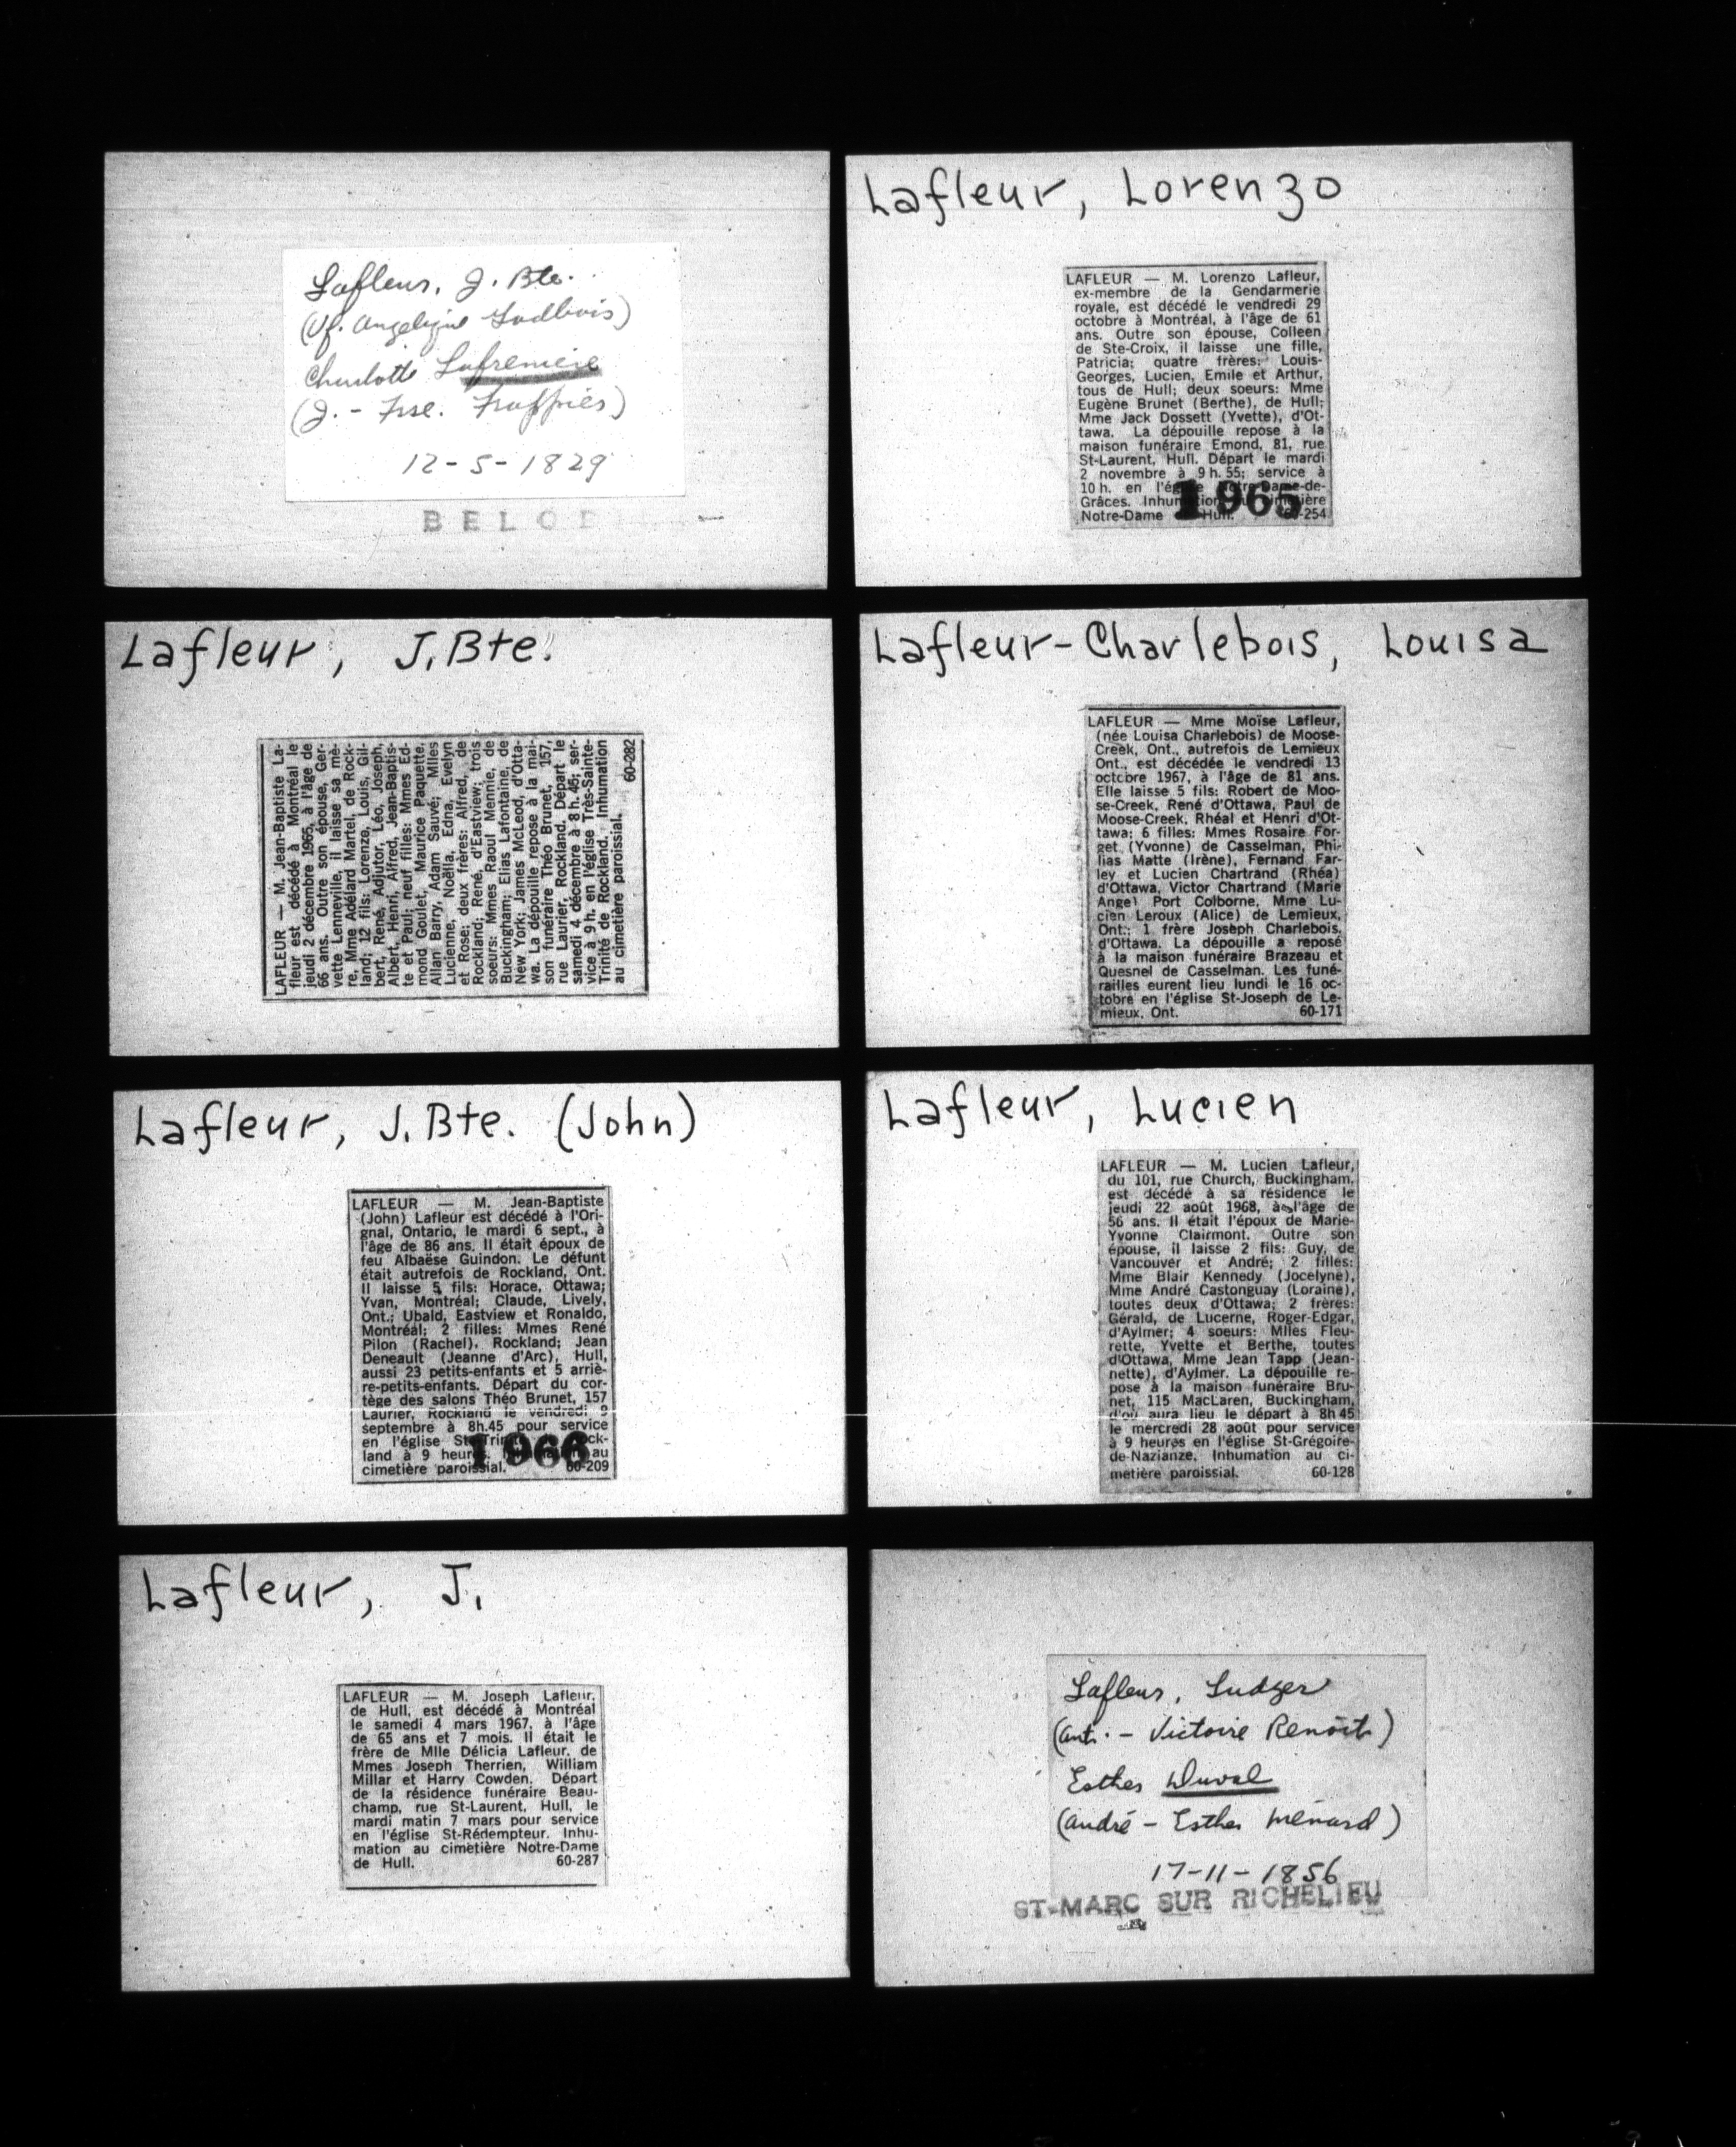 Lafleur, J. Bte.
(Vf. Angelique Ladbois)
Charlotte Lafreniere
(J. - Frse.
12-5-1829
BELOE
Lafleur, J.Bte.
LAFLEUR — M. Jean-Baptiste La-
fleur est décédé à Montréal le
jeudi 2 décembre 1965, à l'âge de
66 ans. Outre son épouse, Ger-
vette Lenneville, il laisse sa mè-
re, Mme Adélard Martel, de Rock-
land; 12 fils: Lorenzo, Louis, Gil-
bert, René, Adjutor, Léo, Joseph,
Albert, Henri, Alfred, Jean-Baptis-
te et Paul; neuf filles: Mmes Ed-
mond Goulet, Maurice Paquette,
Allan Barry, Adam Sauvé; Mlles
Lucienne, Noëlla, Edna, Evelyn
et Rose; deux frères: Alfred, de
Rockland; René, d'Eastview; trois
soeurs: Mmes Raoul Mennie, de
Buckingham; Elias Lafontaine, de
New York; James McLeod, d'Otta-
wa. La dépouille repose à la mai-
son funéraire Théo Brunet, 157,
rue Laurier, Rockland. Départ le
samedi 4 décembre à 8 h. 45; ser-
vice à 9 h. en l'église Très-Sainte-
Trinité de Rockland. Inhumation
au cimetière paroissial. 60-282
Lafleur, J.Bte. (John)
LAFLEUR — M. Jean-Baptiste
(John) Lafleur est décédé à l'Ori-
gnal, Ontario, le mardi 6 sept., à
l'âge de 86 ans. Il était époux de
feu Albaëse Guindon. Le défunt
était autrefois de Rockland, Ont.
Il laisse 5 fils: Horace, Ottawa;
Yvan, Montréal; Claude, Lively,
Ont.; Ubald, Eastview et Ronaldo,
Montréal; 2 filles: Mmes René
Pilon (Rachel), Rockland; Jean
Deneault (Jeanne d'Arc), Hull,
aussi 23 petits-enfants et 5 arriè-
re-petits-enfants. Départ du cor-
tège des salons Théo Brunet, 157
Laurier, Rockland le vendredi 9
septembre à 8h.45 pour service
en l'église Ste-Trinité ock-
land à 9 heures. au
cimetière paroissial. 60-209
1966
Lafleur, J.
LAFLEUR — M. Joseph Lafleur,
de Hull, est décédé à Montréal
le samedi 4 mars 1967, à l'âge
de 65 ans et 7 mois. Il était le
frère de Mlle Délicia Lafleur, de
Mmes Joseph Therrien, William
Millar et Harry Cowden. Départ
de la résidence funéraire Beau-
champ, rue St-Laurent, Hull, le
mardi matin 7 mars pour service
en l'église St-Rédempteur. Inhu-
mation au cimetière Notre-Dame
de Hull. 60-287
Lafleur, Lorenzo
LAFLEUR — M. Lorenzo Lafleur,
ex-membre de la Gendarmerie
royale, est décédé le vendredi 29
octobre à Montréal, à l'âge de 61
ans. Outre son épouse, Colleen
de Ste-Croix, il laisse une fille,
Patricia; quatre frères: Louis-
Georges, Lucien, Emile et Arthur,
tous de Hull; deux soeurs: Mme
Eugène Brunet (Berthe), de Hull;
Mme Jack Dossett (Yvette), d'Ot-
tawa. La dépouille repose à la
maison funéraire Emond, 81, rue
St-Laurent, Hull. Départ le mardi
2 novembre à 9 h. 55; service à
10 h. en l'église Notre-Dame-de-
Grâces. Inhumation cimetière
Notre-Dame Hull. 60-254
1965
Lafleur-Charlebois, Louisa
LAFLEUR — Mme Moïse Lafleur,
(née Louisa Charlebois) de Moose-
Creek, Ont., autrefois de Lemieux
Ont., est décédée le vendredi 13
octobre 1967, à l'âge de 81 ans.
Elle laisse 5 fils: Robert de Moo-
se-Creek, René d'Ottawa, Paul de
Moose-Creek, Rhéal et Henri d'Ot-
tawa; 6 filles: Mmes Rosaire For-
get (Yvonne) de Casselman, Phi-
lias Matte (Irène), Fernand Far-
ley et Lucien Chartrand (Rhéa)
d'Ottawa, Victor Chartrand (Marie
Ange) Port Colborne, Mme Lu-
cien Leroux (Alice) de Lemieux,
Ont.; 1 frère Joseph Charlebois,
d'Ottawa. La dépouille a reposé
à la maison funéraire Brazeau et
Quesnel de Casselman. Les funé-
railles eurent lieu lundi le 16 oc-
tobre en l'église St-Joseph de Le-
mieux, Ont. 60-171
Lafleur, Lucien
LAFLEUR — M. Lucien Lafleur,
du 101, rue Church, Buckingham,
est décédé à sa résidence le
jeudi 22 août 1968, à l'âge de
56 ans. Il était l'époux de Marie-
Yvonne Clairmont. Outre son
épouse, il laisse 2 fils: Guy, de
Vancouver et André; 2 filles:
Mme Blair Kennedy (Jocelyne),
Mme André Castonguay (Loraine),
toutes deux d'Ottawa; 2 frères:
Gérald, de Lucerne, Roger-Edgar,
d'Aylmer; 4 soeurs: Mlles Fleu-
rette, Yvette et Berthe, toutes
d'Ottawa, Mme Jean Tapp (Jean-
nette), d'Aylmer. La dépouille re-
pose à la maison funéraire Bru-
net, 115 MacLaren, Buckingham,
d'où aura lieu le départ à 8h45
le mercredi 28 août pour service
à 9 heures en l'église St-Grégoire-
de-Nazianze. Inhumation au ci-
metière paroissial. 60-128
Lafleur, Ludger
(ant. - Victoire Benoit)
Esther Duval
(André - Esther Ménard)
17-11-1856
ST-MARC SUR RICHELIEU